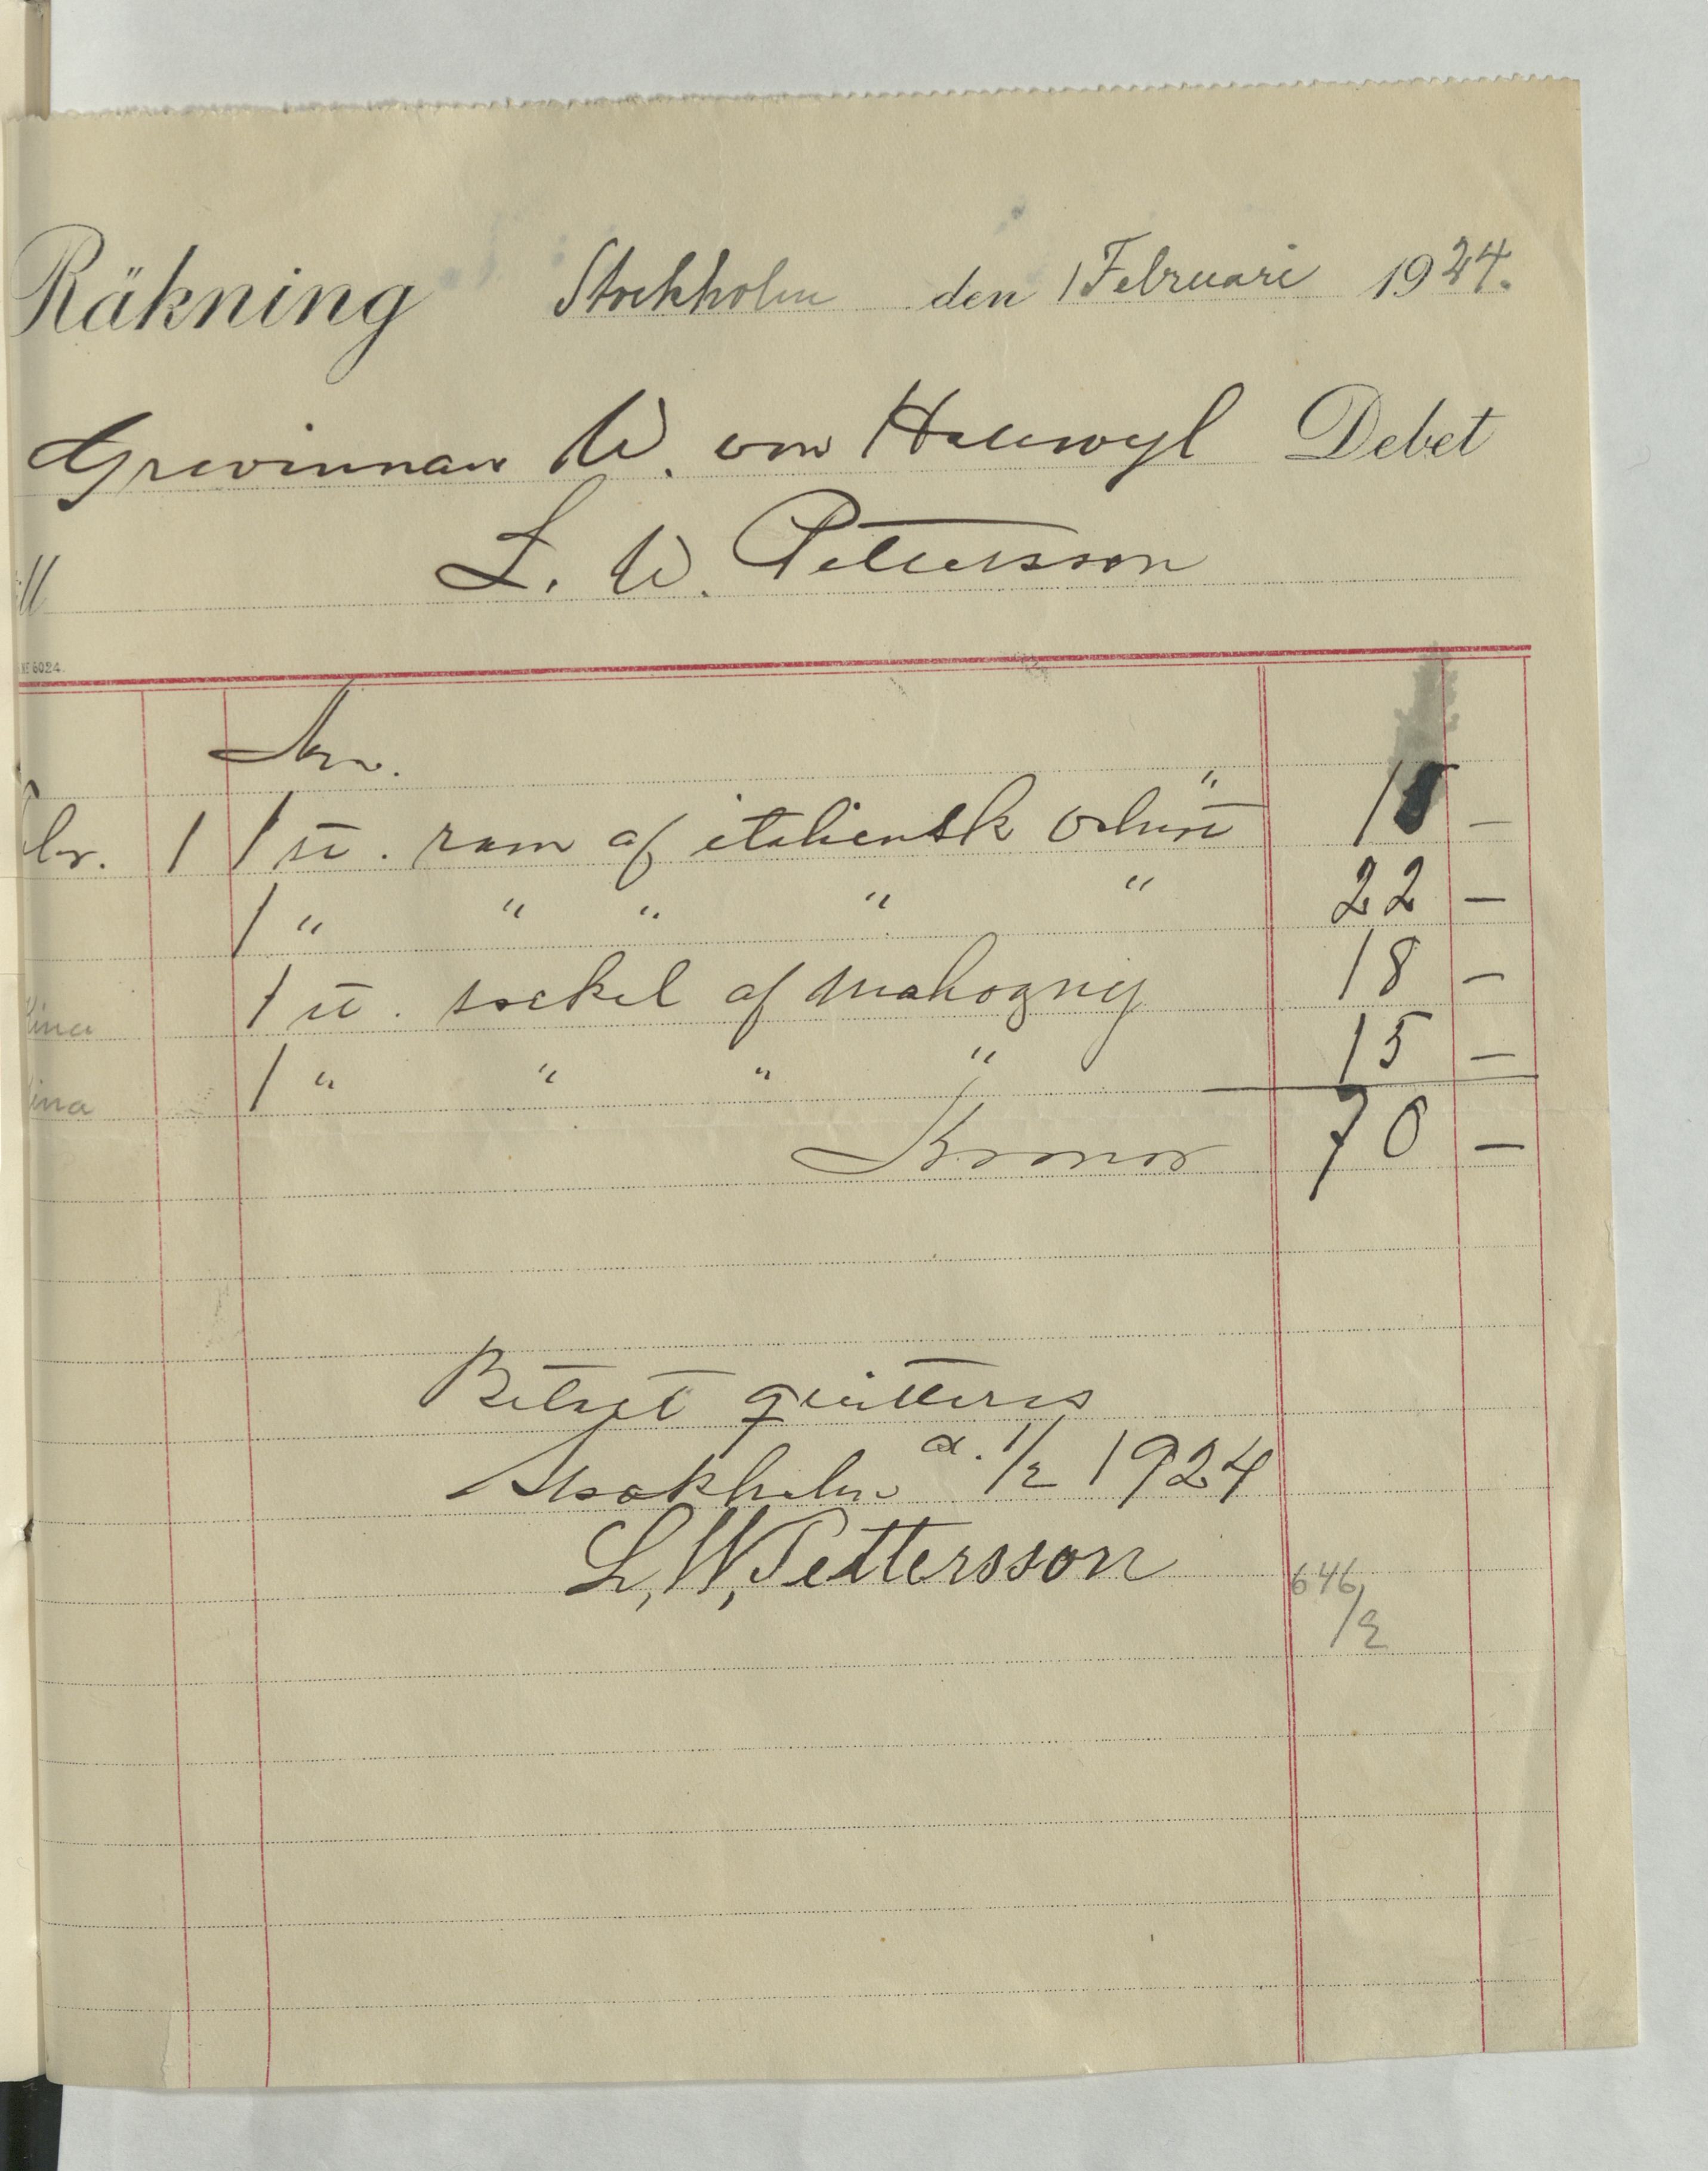 Räkning Stockholm den 1 Februari 1924.
Grevinnan W. von Hallwyl Debet
ill L. W. Pettersson
NE 6024.
br. 1 1 st. ram af italiensk valnöt 15 –
1 " " " " " 22 –
1 st. sockel af mahogny 18 –
ina
1 " " " " 15 –
ina
Kronor 70 –
Betalt quitteras
Stockholm d. 1/2 1924
L. W. Pettersson
646
/2